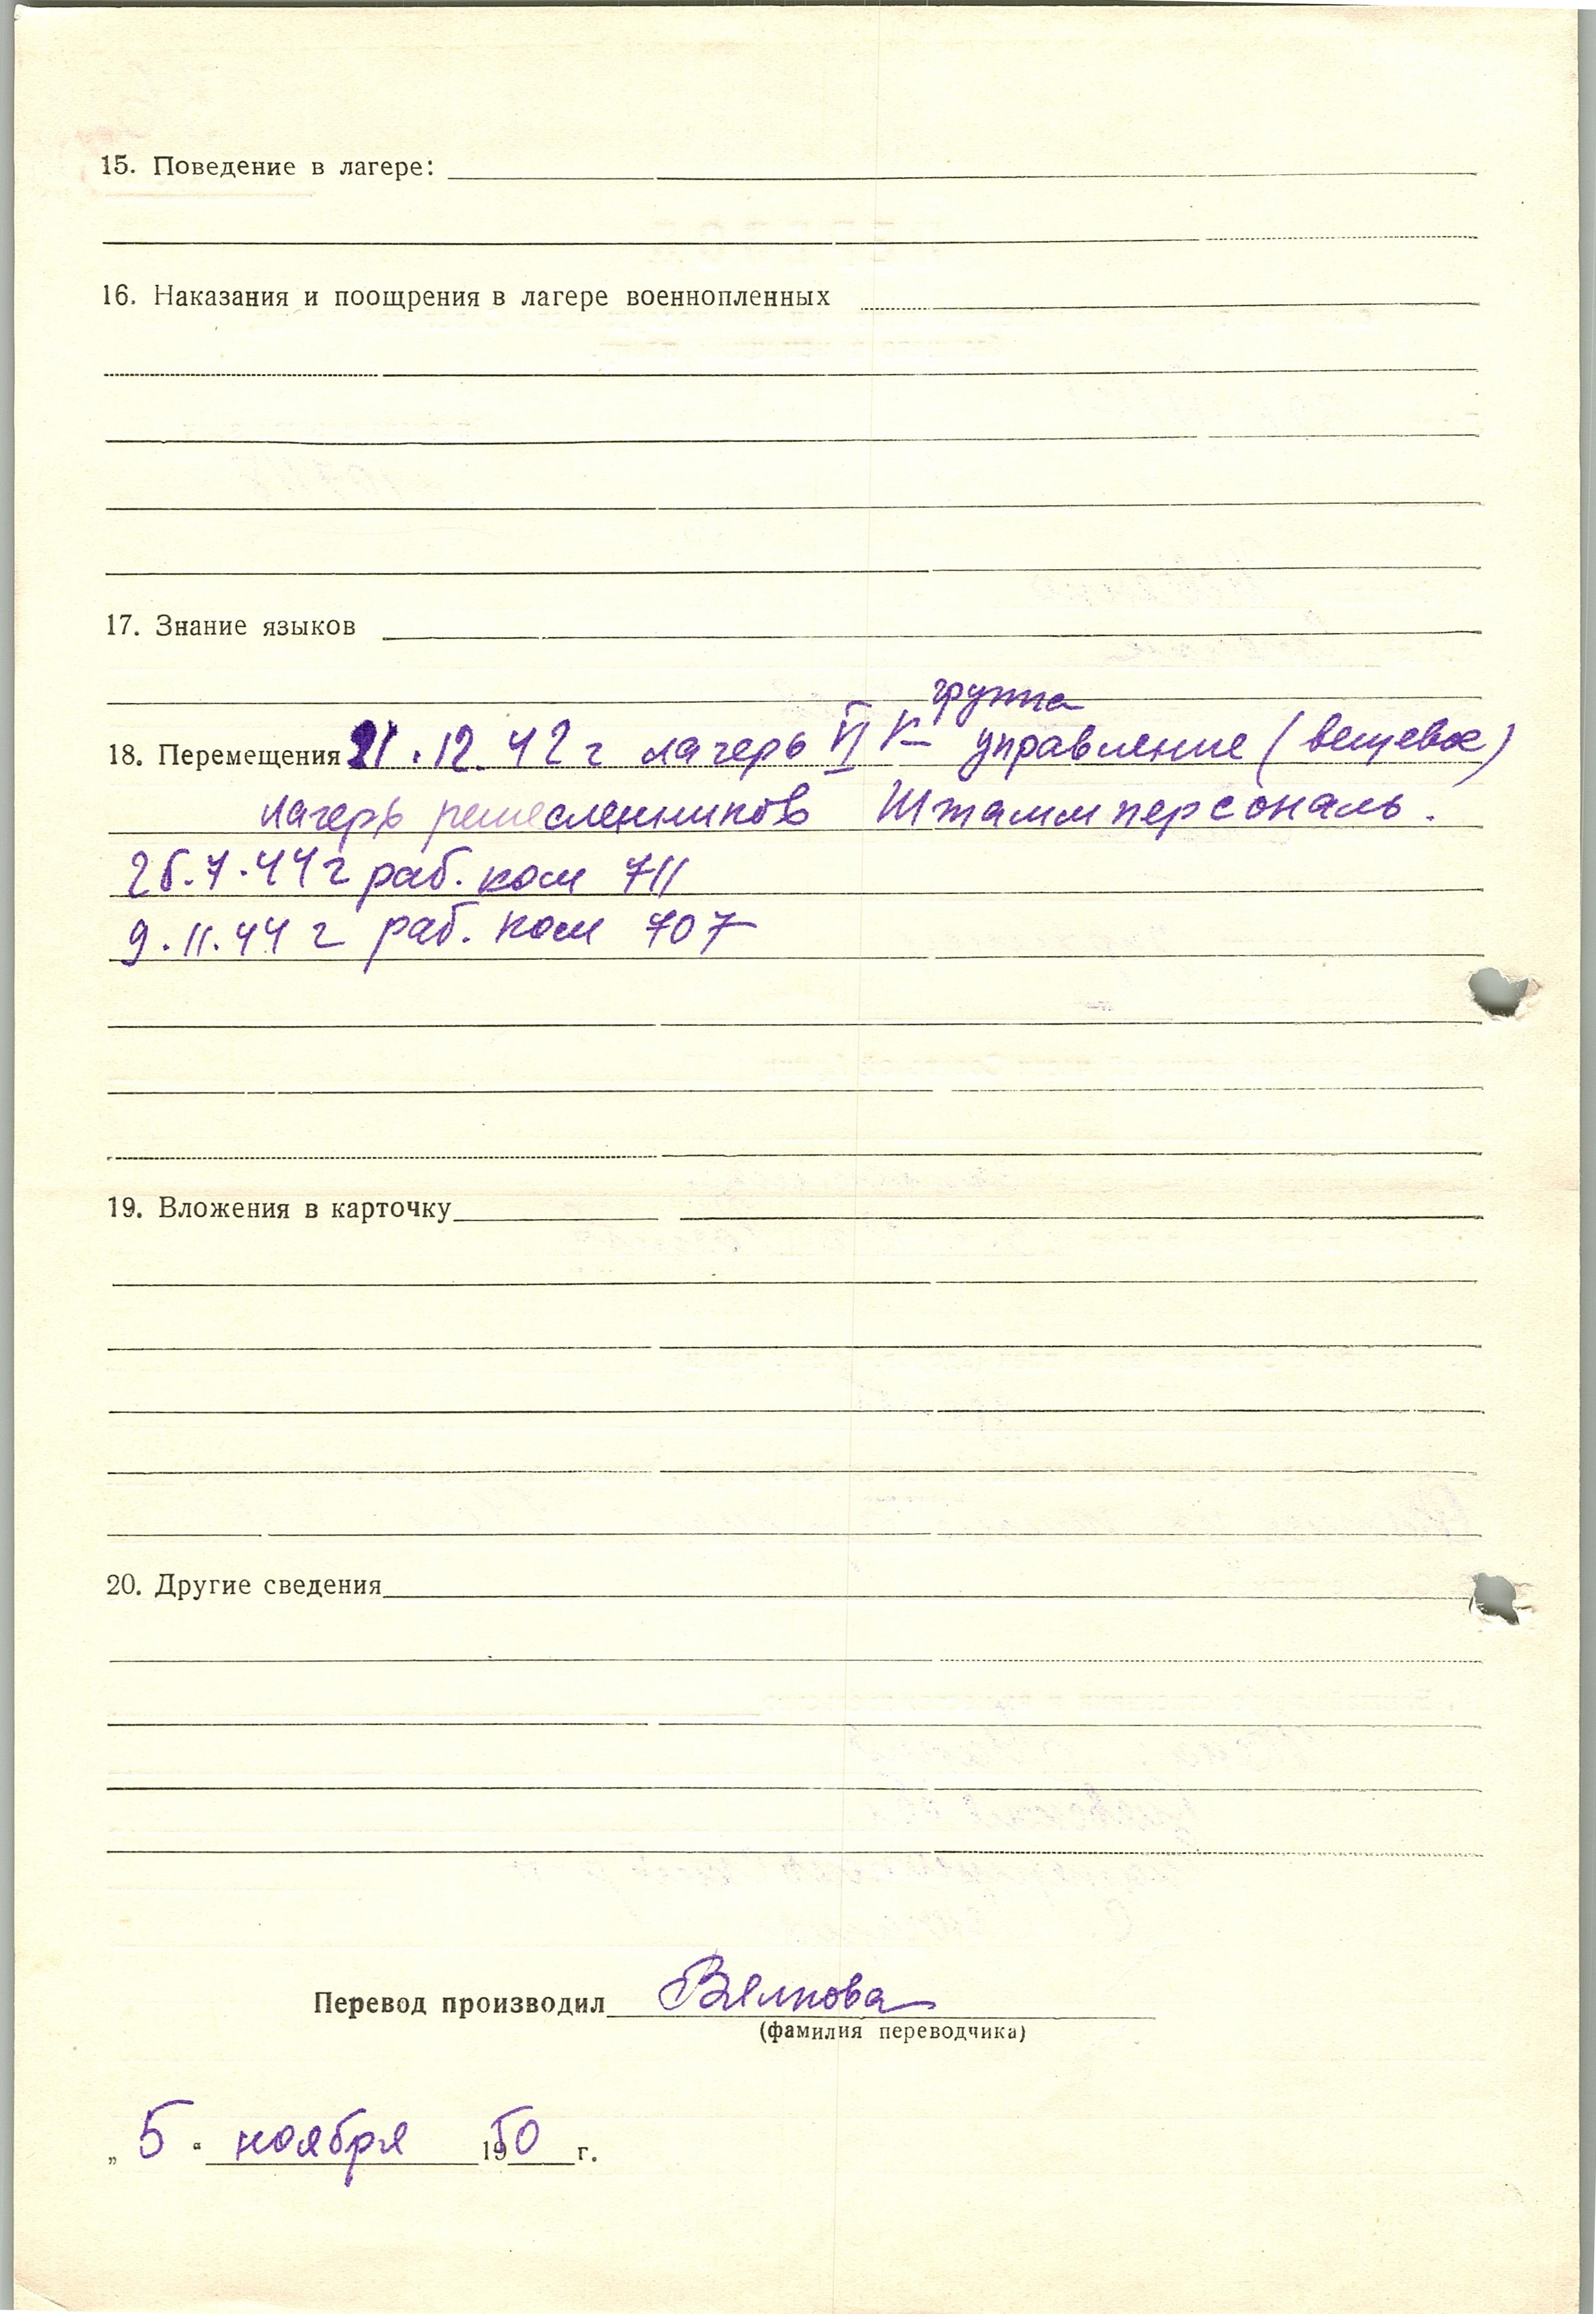 15. Поведение в лагере:
16. Наказания и поощрения в лагере военнопленных
17. Знание языков
группа
18. Перемещения 21.12.42 г лагерь VI К управление (вещевое)
лагерь ремесленников Штаммперсональ.
26.7.44 г раб. ком 711
9.11.44 г раб. ком 707
19. Вложения в карточку
20. Другие сведения
Перевод производил Вялкова
(фамилия переводчика)
„ 5 “ ноября 1950 г.